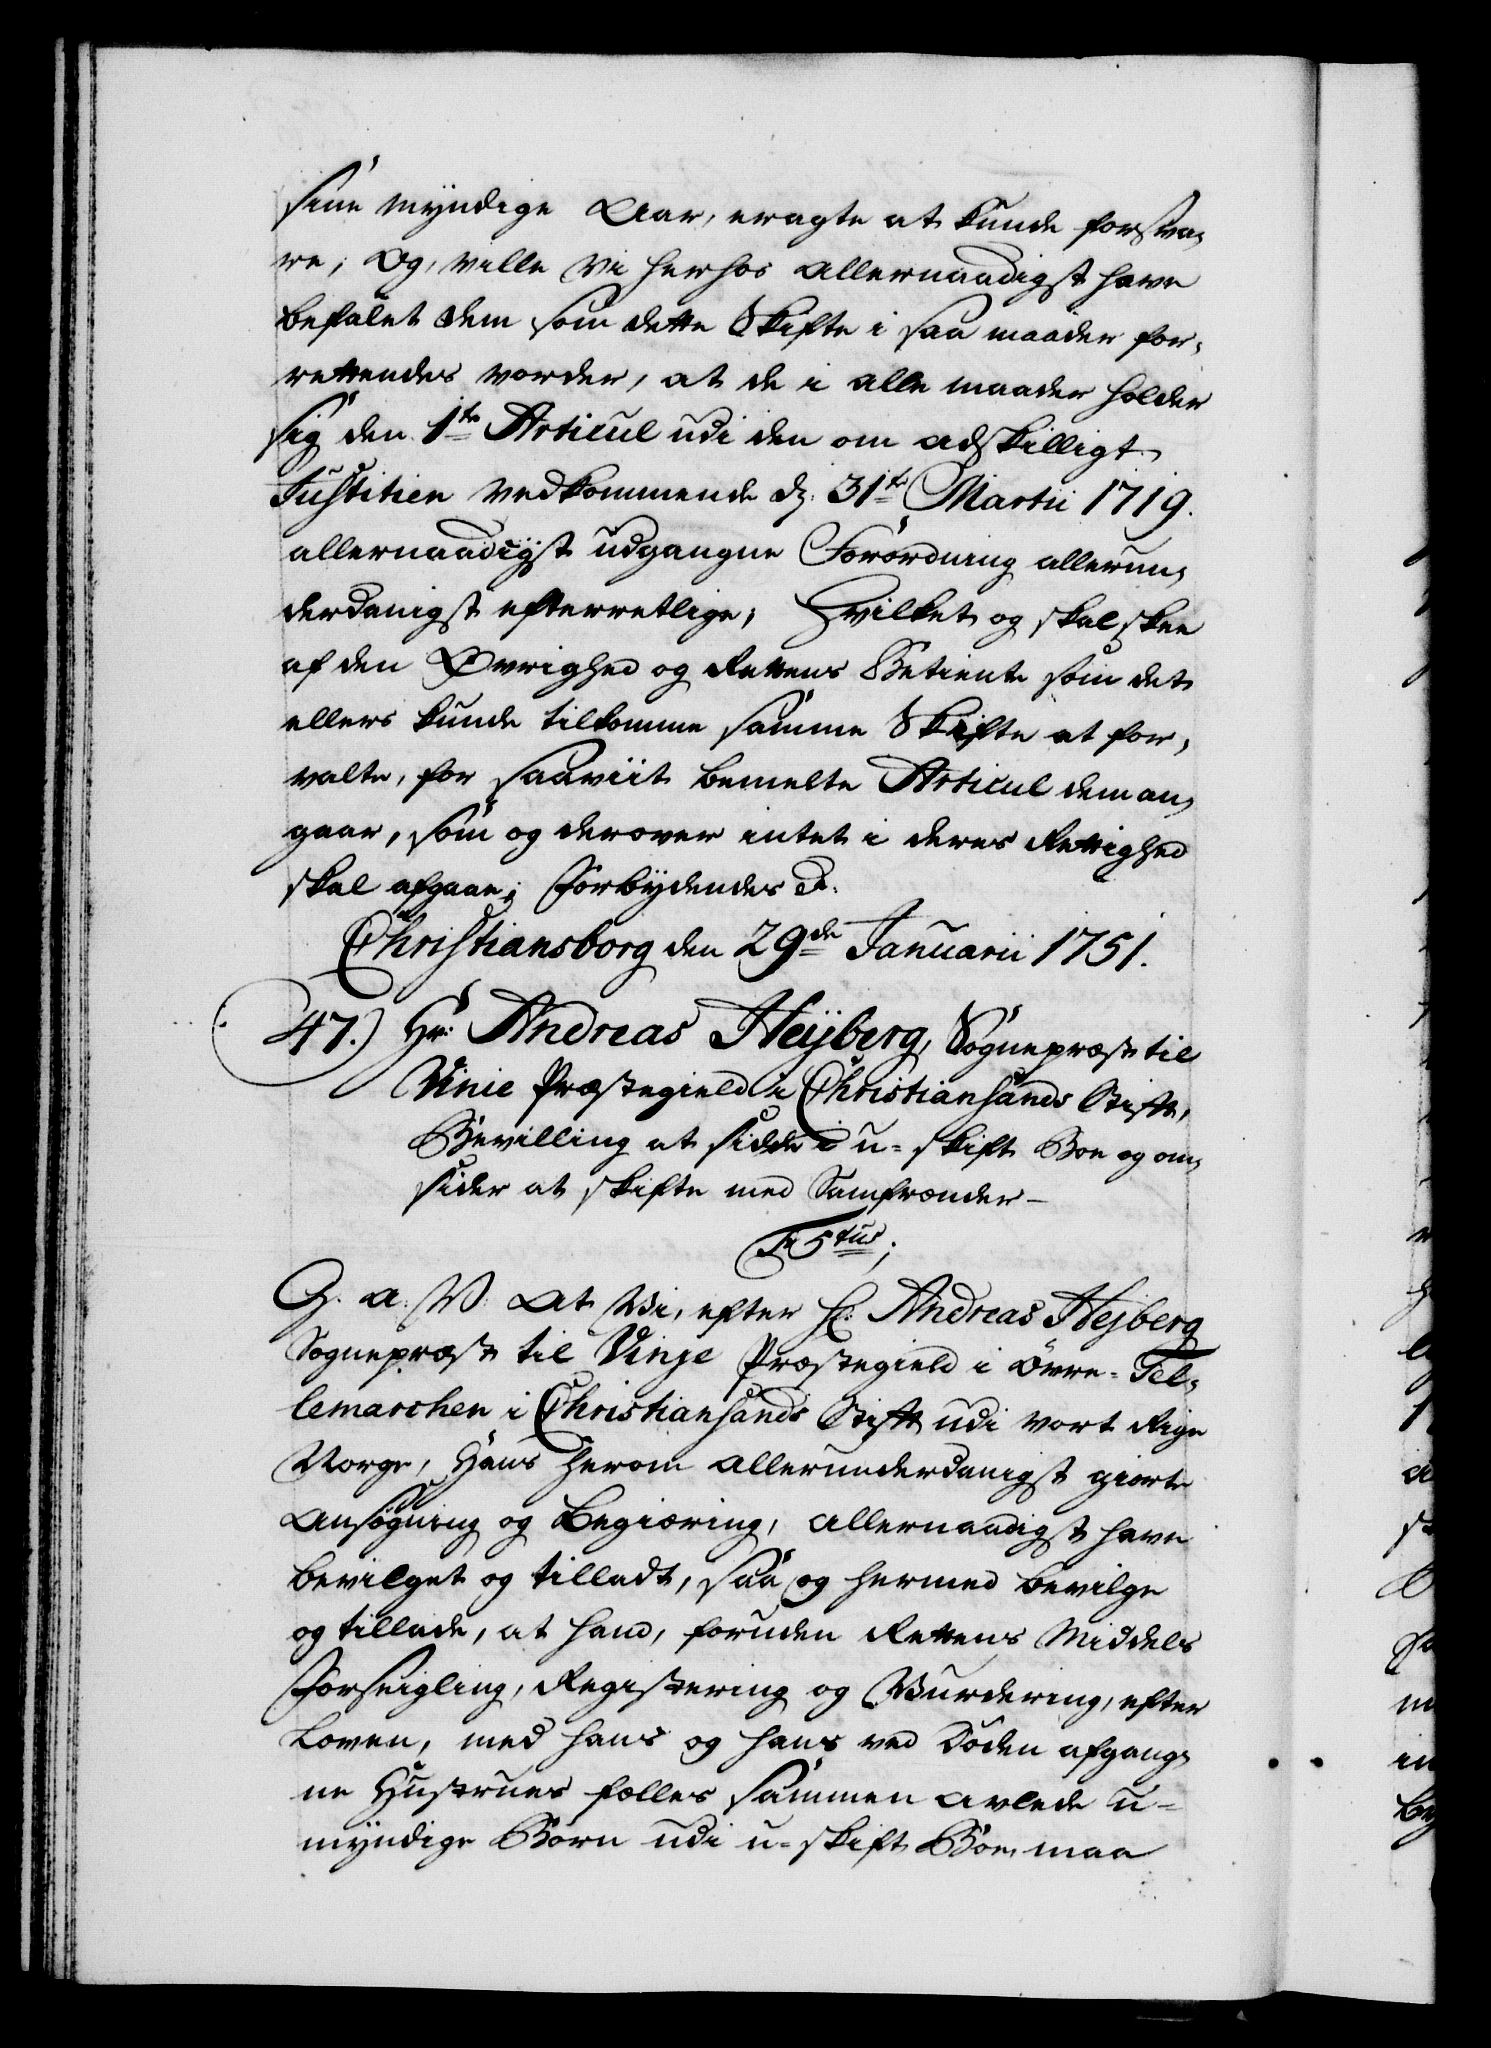 sine myndige Aar, eragte at kunde forsva-
re; Og, ville Vi herhos allernaadigst have
befalet dem som dette Skifte i saa maader for-
rettendes vorder, at de i alle maader holder
sig den 1te Articul udi den om adskilligt
Justitien vedkommende dj. 31te Martii 1719.
allernaadigst udgangne Forordning allerun-
derdanigst efterretlige; Hvilket og skal skee
af den Øvrighed og Rettens Betiente som det
ellers kunde tilkomme samme Skifte at for-
valte, for saaviit bemelte Articul dem an-
gaar, som og derover intet i deres Rettighed
skal afgaae; Forbydendes &.
Christiansborg den 29de Januarii 1751.
47.) Hr: Andreas Heÿberg, Sognepræst til
Vinie Præstegield i Christiansands Stift,
Bevilling at sidde i u-skift Boe og om-
sider at skifte med Samfrænder-
F 5tus;
G. a. V: At Vi, efter Hr: Andreas Hejberg
Sognepræst til Vinje Præstegield i Øvre-Tel-
lemarchen i Christiansands Stift udi vort Rige
Norge, Hans herom allerunderdanigst giorte
Ansøgning og Begiæring, allernaadigst have
bevilget og tilladt, saa og hermed bevilge
og tillade, at hand, foruden Rettens Middels
Forseigling, Registering og Vurdering, efter
Loven, med hans og hans ved Døden afgang-
ne Hustrues fælles sammen avlede u-
myndige Børn udi u-skift Boe, maa